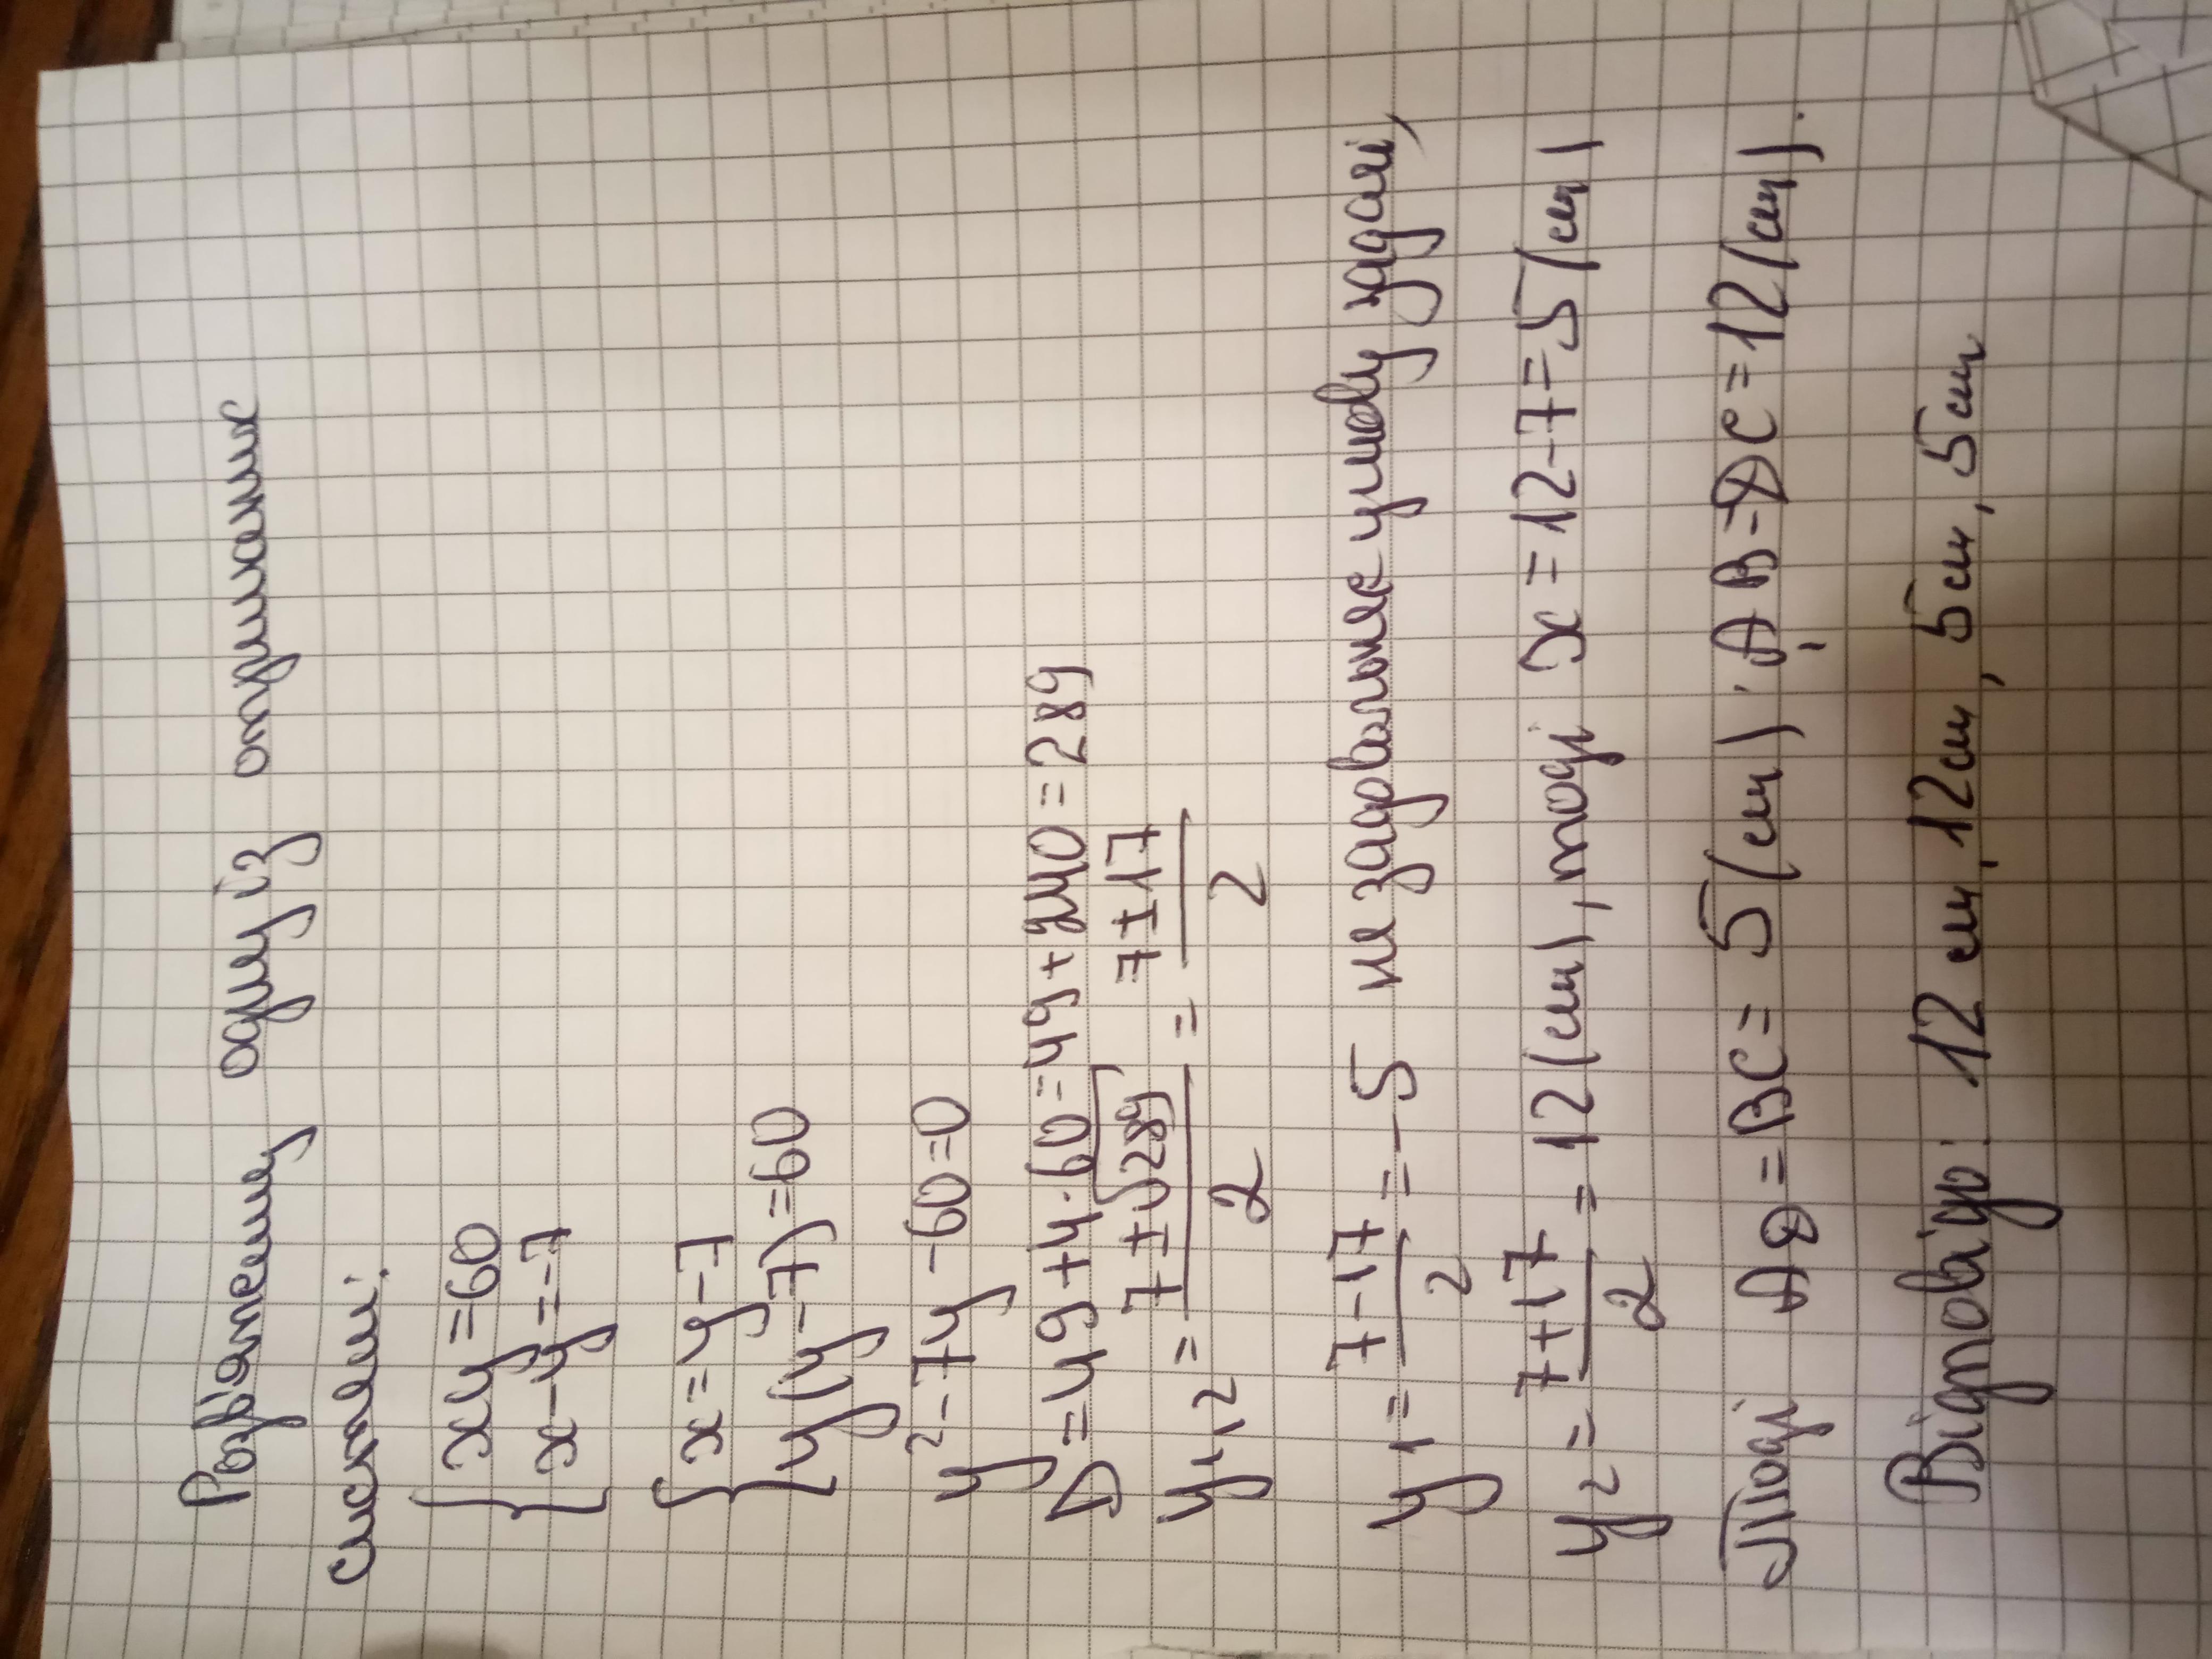 Розв'яжемо одну із отриманих
систем:
{ xy = 60
x - y = -7
{ x = y - 7
y(y - 7) = 60
y² - 7y - 60 = 0
D = 49 + 4 · 60 = 49 + 240 = 289
y₁,₂ = (7 ± √289)/2 = (7 ± 17)/2
y₁ = (7 - 17)/2 = -5 не задовольняє умову задачі,
y₂ = (7 + 17)/2 = 12 (см), тоді x = 12 - 7 = 5 (см)
Тоді AD = BC = 5 (см); AB = DC = 12 (см).
Відповідь: 12 см, 12 см, 5 см, 5 см